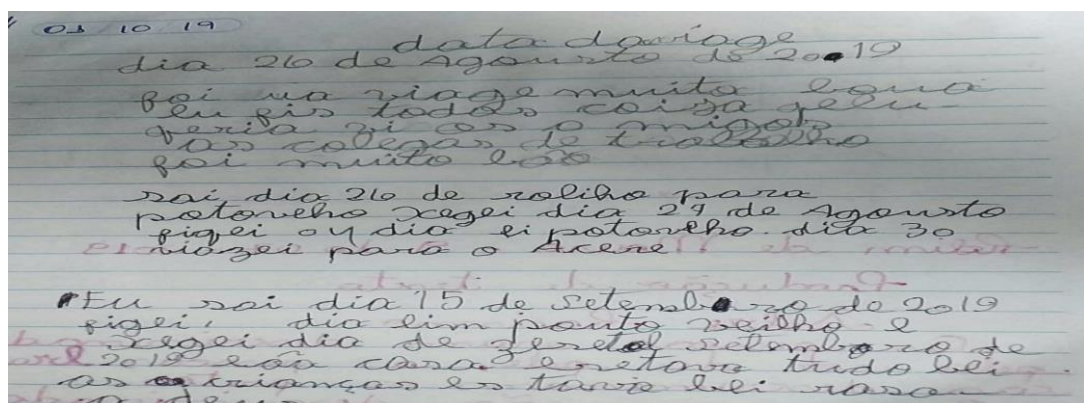 01 10 19
data da viage
dia 26 de Agousto de 2019
foi ua viage muito boua
eu fis todas coiza qelu
qeria vi os o migols
vos colegas de trabalho
foi muito boo
sai dia 26 de roliho para
potoveho xegei dia 29 de Agousto
fiqei oy dia ei potovelho. dia 30
viazei para o Acere
Eu sai dia 15 de Setembro de 2019
figei, dia eim pouto veilho e
xegei dia de setembro de
2019 eão casa estava tudo bei
as crianças es tavão bei